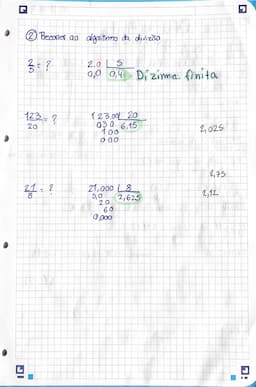 ② Recorrer ao algoritmo da divisão
2/5 = ? 2,0 | 5
0,0 0,4 Dízima finita
123/20 = ? 123,00 | 20
030 6,15
100 2,025
000
2,75
21/8 = ? 21,000 | 8 2,12
5,0 2,625
20
60
0,000